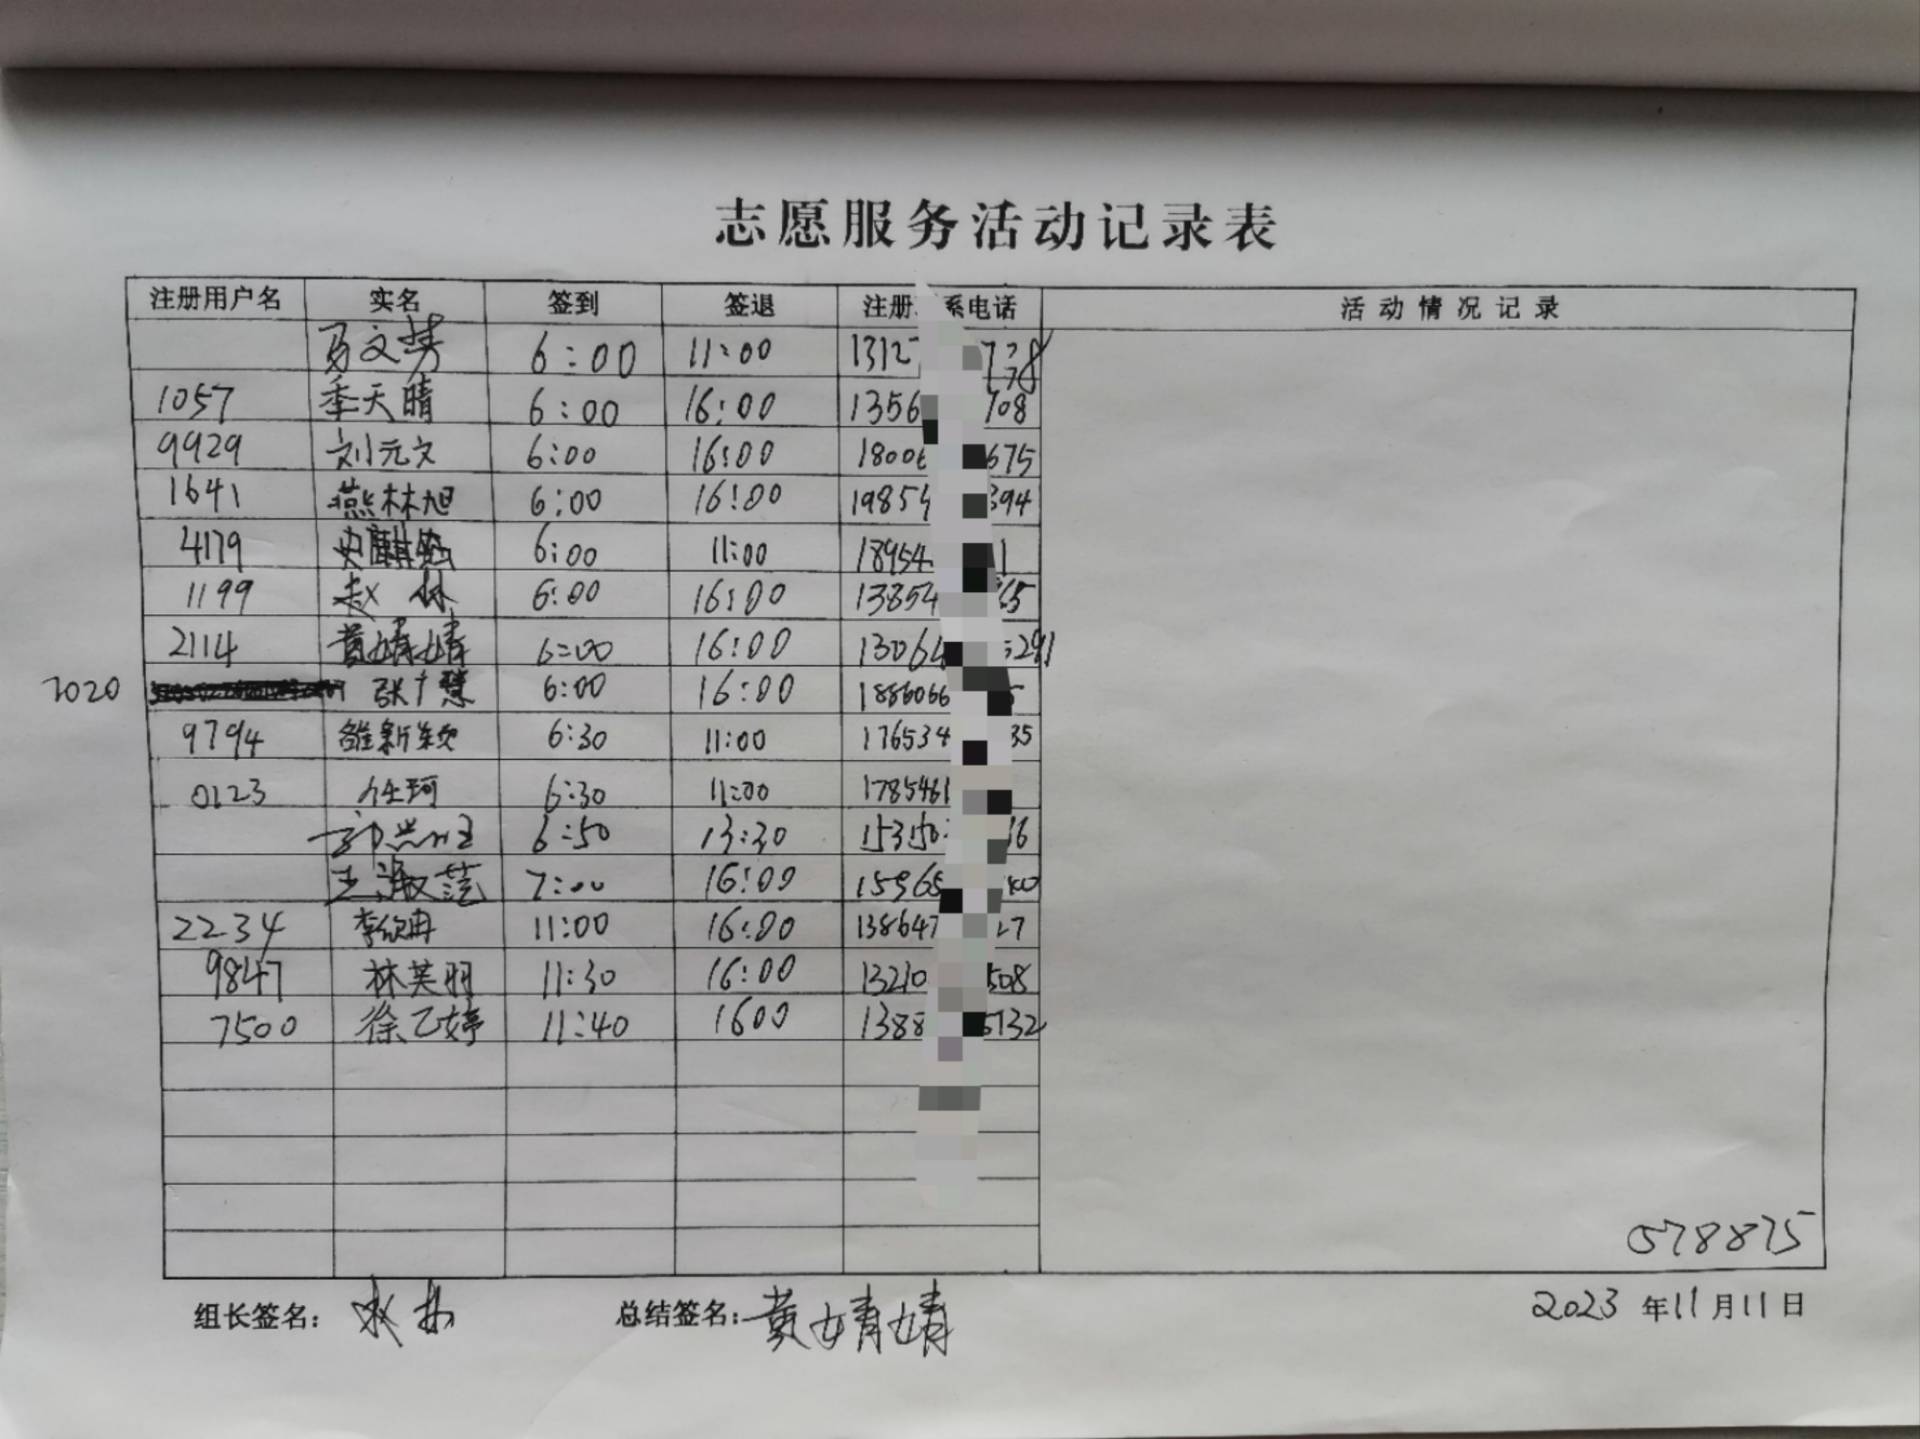 志愿服务活动记录表
注册用户名 实名 签到 签退 注册 系电话 活动情况记录
6:00 11:00 1312
1057 季天晴 6:00 16:00 1356 708
9929 刘元文 6:00 16:00 1800 675
1641 燕林旭 6:00 16:00 1985 394
4179 6:00 11:00 18954 1
1199 赵林 6:00 16:00 13854 65
2114 黄婧婧 6:00 16:00 13064 291
7020 张广慧 6:00 16:00 1886066
9794 雒新颖 6:30 11:00 176534 35
0123 任珂 6:30 11:00 1785461
6:50 13:30 15315 16
王淑莲 7:00 16:00 15965
2234 李欣冉 11:00 16:00 138647 27
9847 林芙羽 11:30 16:00 13210 508
7500 徐乙婷 11:40 1600 1388 5132
578875
组长签名: 总结签名: 黄婧婧 2023年11月11日